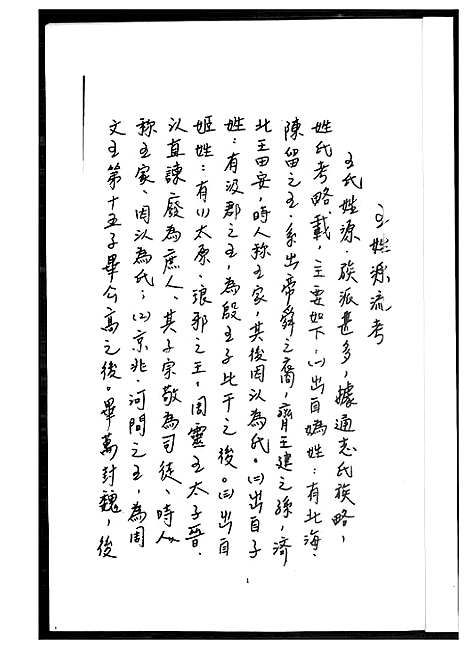 王姓源流考
王氏姓源、族派甚多，據通志氏族略，
姓氏考略載，主要如下：㈠出自媯姓：有北海、
陳留之王，系出帝舜之裔，齊王建之孫，濟
北王田安，時人称王家，其後因以為氏。㈡出自子
姓：有汲郡之王，為殷王子比干之後。㈢出自
姬姓：有⑴太原、琅邪之王，周靈王太子晉，
以直諫廢為庶人、其子宗敬為司徒、時人
称王家、因以為氏；⑵京兆、河間之王，為周
文王第十五子畢公高之後。畢萬封魏，後
1